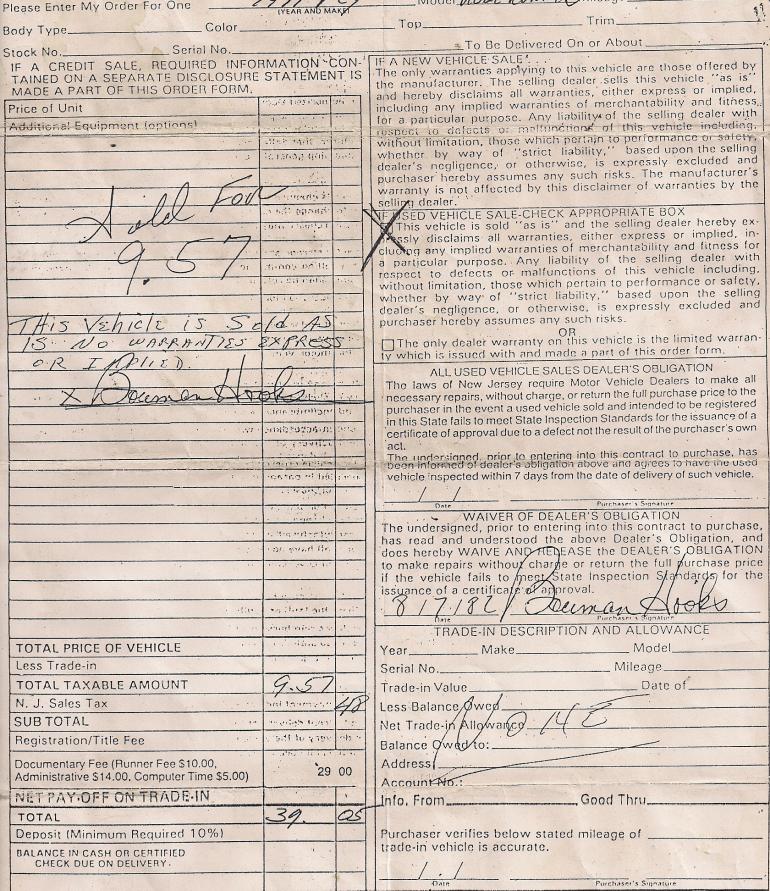 Please Enter My Order For One
(YEAR AND MAKE)
Body Type Color Top Trim
Stock No. Serial No. To Be Delivered On or About
IF A CREDIT SALE, REQUIRED INFORMATION CON-
TAINED ON A SEPARATE DISCLOSURE STATEMENT IS
MADE A PART OF THIS ORDER FORM.
Price of Unit
Additional Equipment (options)
Sold For
9.57
THIS Vehicle is Sold AS
IS NO WARRANTIES EXPRESS
OR IMPLIED.
X Bowman Hooks
TOTAL PRICE OF VEHICLE
Less Trade-in
TOTAL TAXABLE AMOUNT 9.57
N. J. Sales Tax 48
SUB TOTAL
Registration/Title Fee
Documentary Fee (Runner Fee $10.00,
Administrative $14.00, Computer Time $5.00) 29 00
NET PAY-OFF ON TRADE-IN
TOTAL 39. 05
Deposit (Minimum Required 10%)
BALANCE IN CASH OR CERTIFIED
CHECK DUE ON DELIVERY.
IF A NEW VEHICLE SALE
The only warranties applying to this vehicle are those offered by
the manufacturer. The selling dealer sells this vehicle "as is"
and hereby disclaims all warranties, either express or implied,
including any implied warranties of merchantability and fitness
for a particular purpose. Any liability of the selling dealer with
respect to defects or malfunctions of this vehicle including,
without limitation, those which pertain to performance or safety,
whether by way of "strict liability," based upon the selling
dealer's negligence, or otherwise, is expressly excluded and
purchaser hereby assumes any such risks. The manufacturer's
warranty is not affected by this disclaimer of warranties by the
selling dealer.
IF USED VEHICLE SALE-CHECK APPROPRIATE BOX
X This vehicle is sold "as is" and the selling dealer hereby ex-
pressly disclaims all warranties, either express or implied, in-
cluding any implied warranties of merchantability and fitness for
a particular purpose. Any liability of the selling dealer with
respect to defects or malfunctions of this vehicle including,
without limitation, those which pertain to performance or safety,
whether by way of "strict liability," based upon the selling
dealer's negligence, or otherwise, is expressly excluded and
purchaser hereby assumes any such risks.
OR
The only dealer warranty on this vehicle is the limited warran-
ty which is issued with and made a part of this order form.
ALL USED VEHICLE SALES DEALER'S OBLIGATION
The laws of New Jersey require Motor Vehicle Dealers to make all
necessary repairs, without charge, or return the full purchase price to the
purchaser in the event a used vehicle sold and intended to be registered
in this State fails to meet State Inspection Standards for the issuance of a
certificate of approval due to a defect not the result of the purchaser's own
act.
The undersigned, prior to entering into this contract to purchase, has
been informed of dealer's obligation above and agrees to have the used
vehicle inspected within 7 days from the date of delivery of such vehicle.
/ /
Date Purchaser's Signature
WAIVER OF DEALER'S OBLIGATION
The undersigned, prior to entering into this contract to purchase,
has read and understood the above Dealer's Obligation, and
does hereby WAIVE AND RELEASE the DEALER'S OBLIGATION
to make repairs without charge or return the full purchase price
if the vehicle fails to meet State Inspection Standards for the
issuance of a certificate of approval.
8/7/82 Bowman Hooks
Date Purchaser's Signature
TRADE-IN DESCRIPTION AND ALLOWANCE
Year Make Model
Serial No. Mileage
Trade-in Value Date of
Less Balance Owed
Net Trade-in Allowance NONE
Balance Owed to:
Address
Account No.:
Info. From Good Thru
Purchaser verifies below stated mileage of
trade-in vehicle is accurate.
/ /
Date Purchaser's Signature